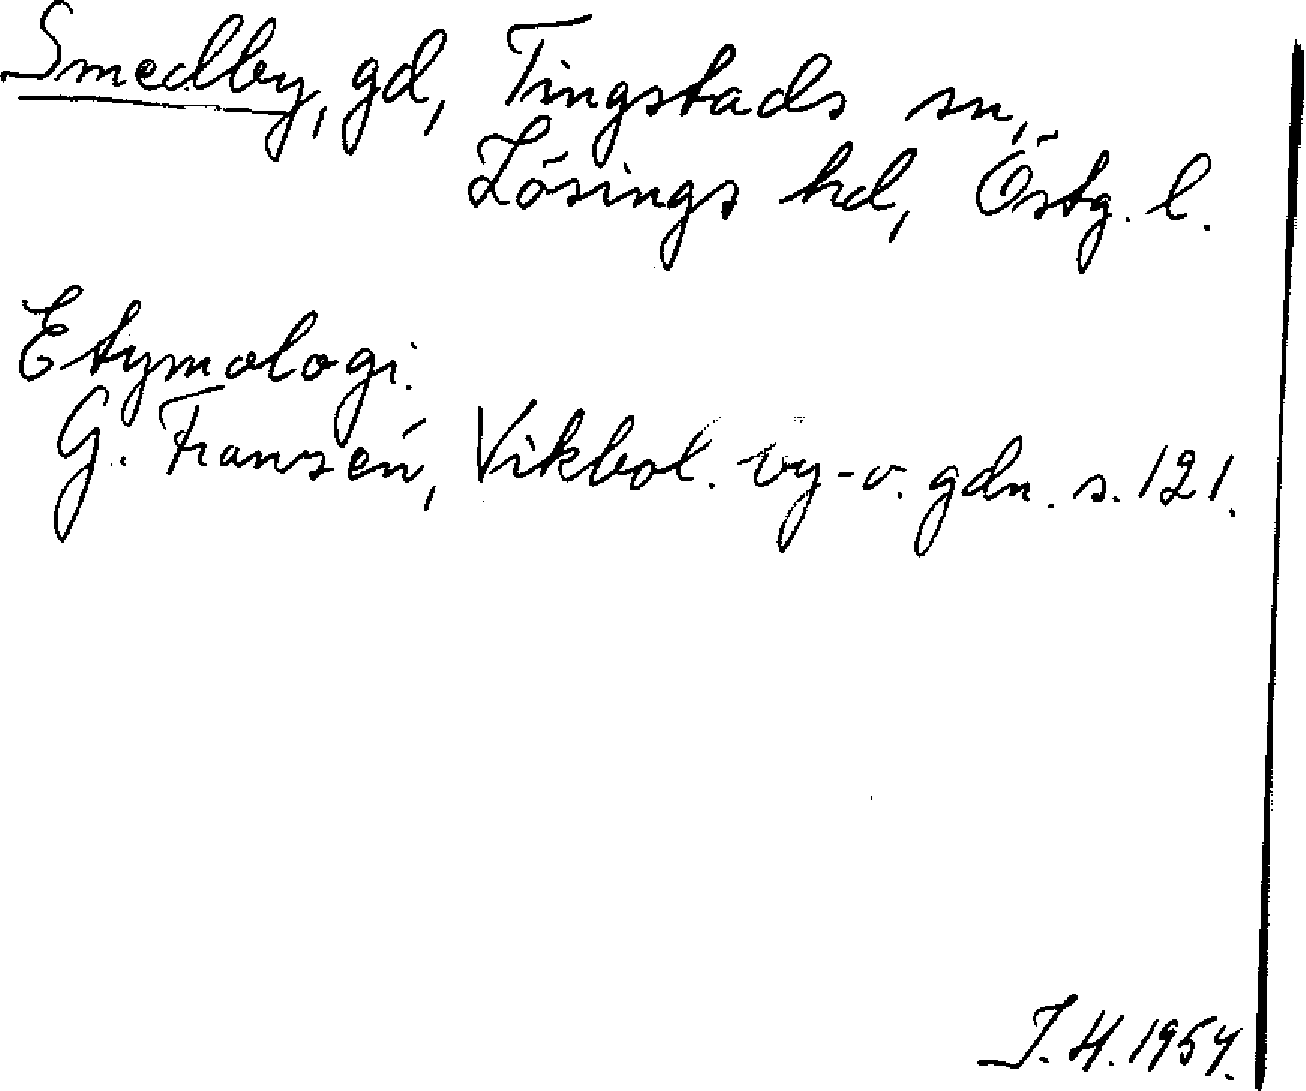 Smedby, gd, Tingstads sn,
Lösings hd, Östg. l.
Etymologi.
G. Franzén, Vikbol. by- o. gdn. s. 121.
J. H. 1954.